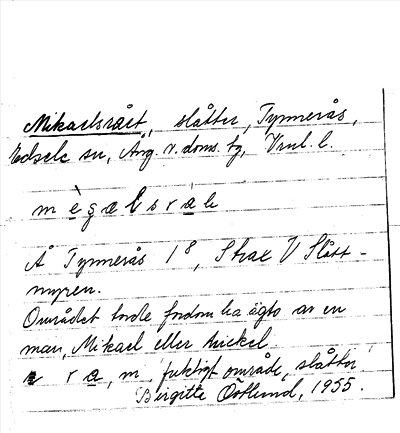 Mikaelsråt, slåtter, Tynnerås,
Edsele sn, Ång. v. doms. tg, Vrnl. l.
mègælsrak
Å Tynnerås 1⁸, Strax V Slått-
myren.
Området torde fordom ha ägts av en
man, Mikael eller Mickel.
ra, m, fuktigt område, slåtter
Birgitta Östlund, 1955.